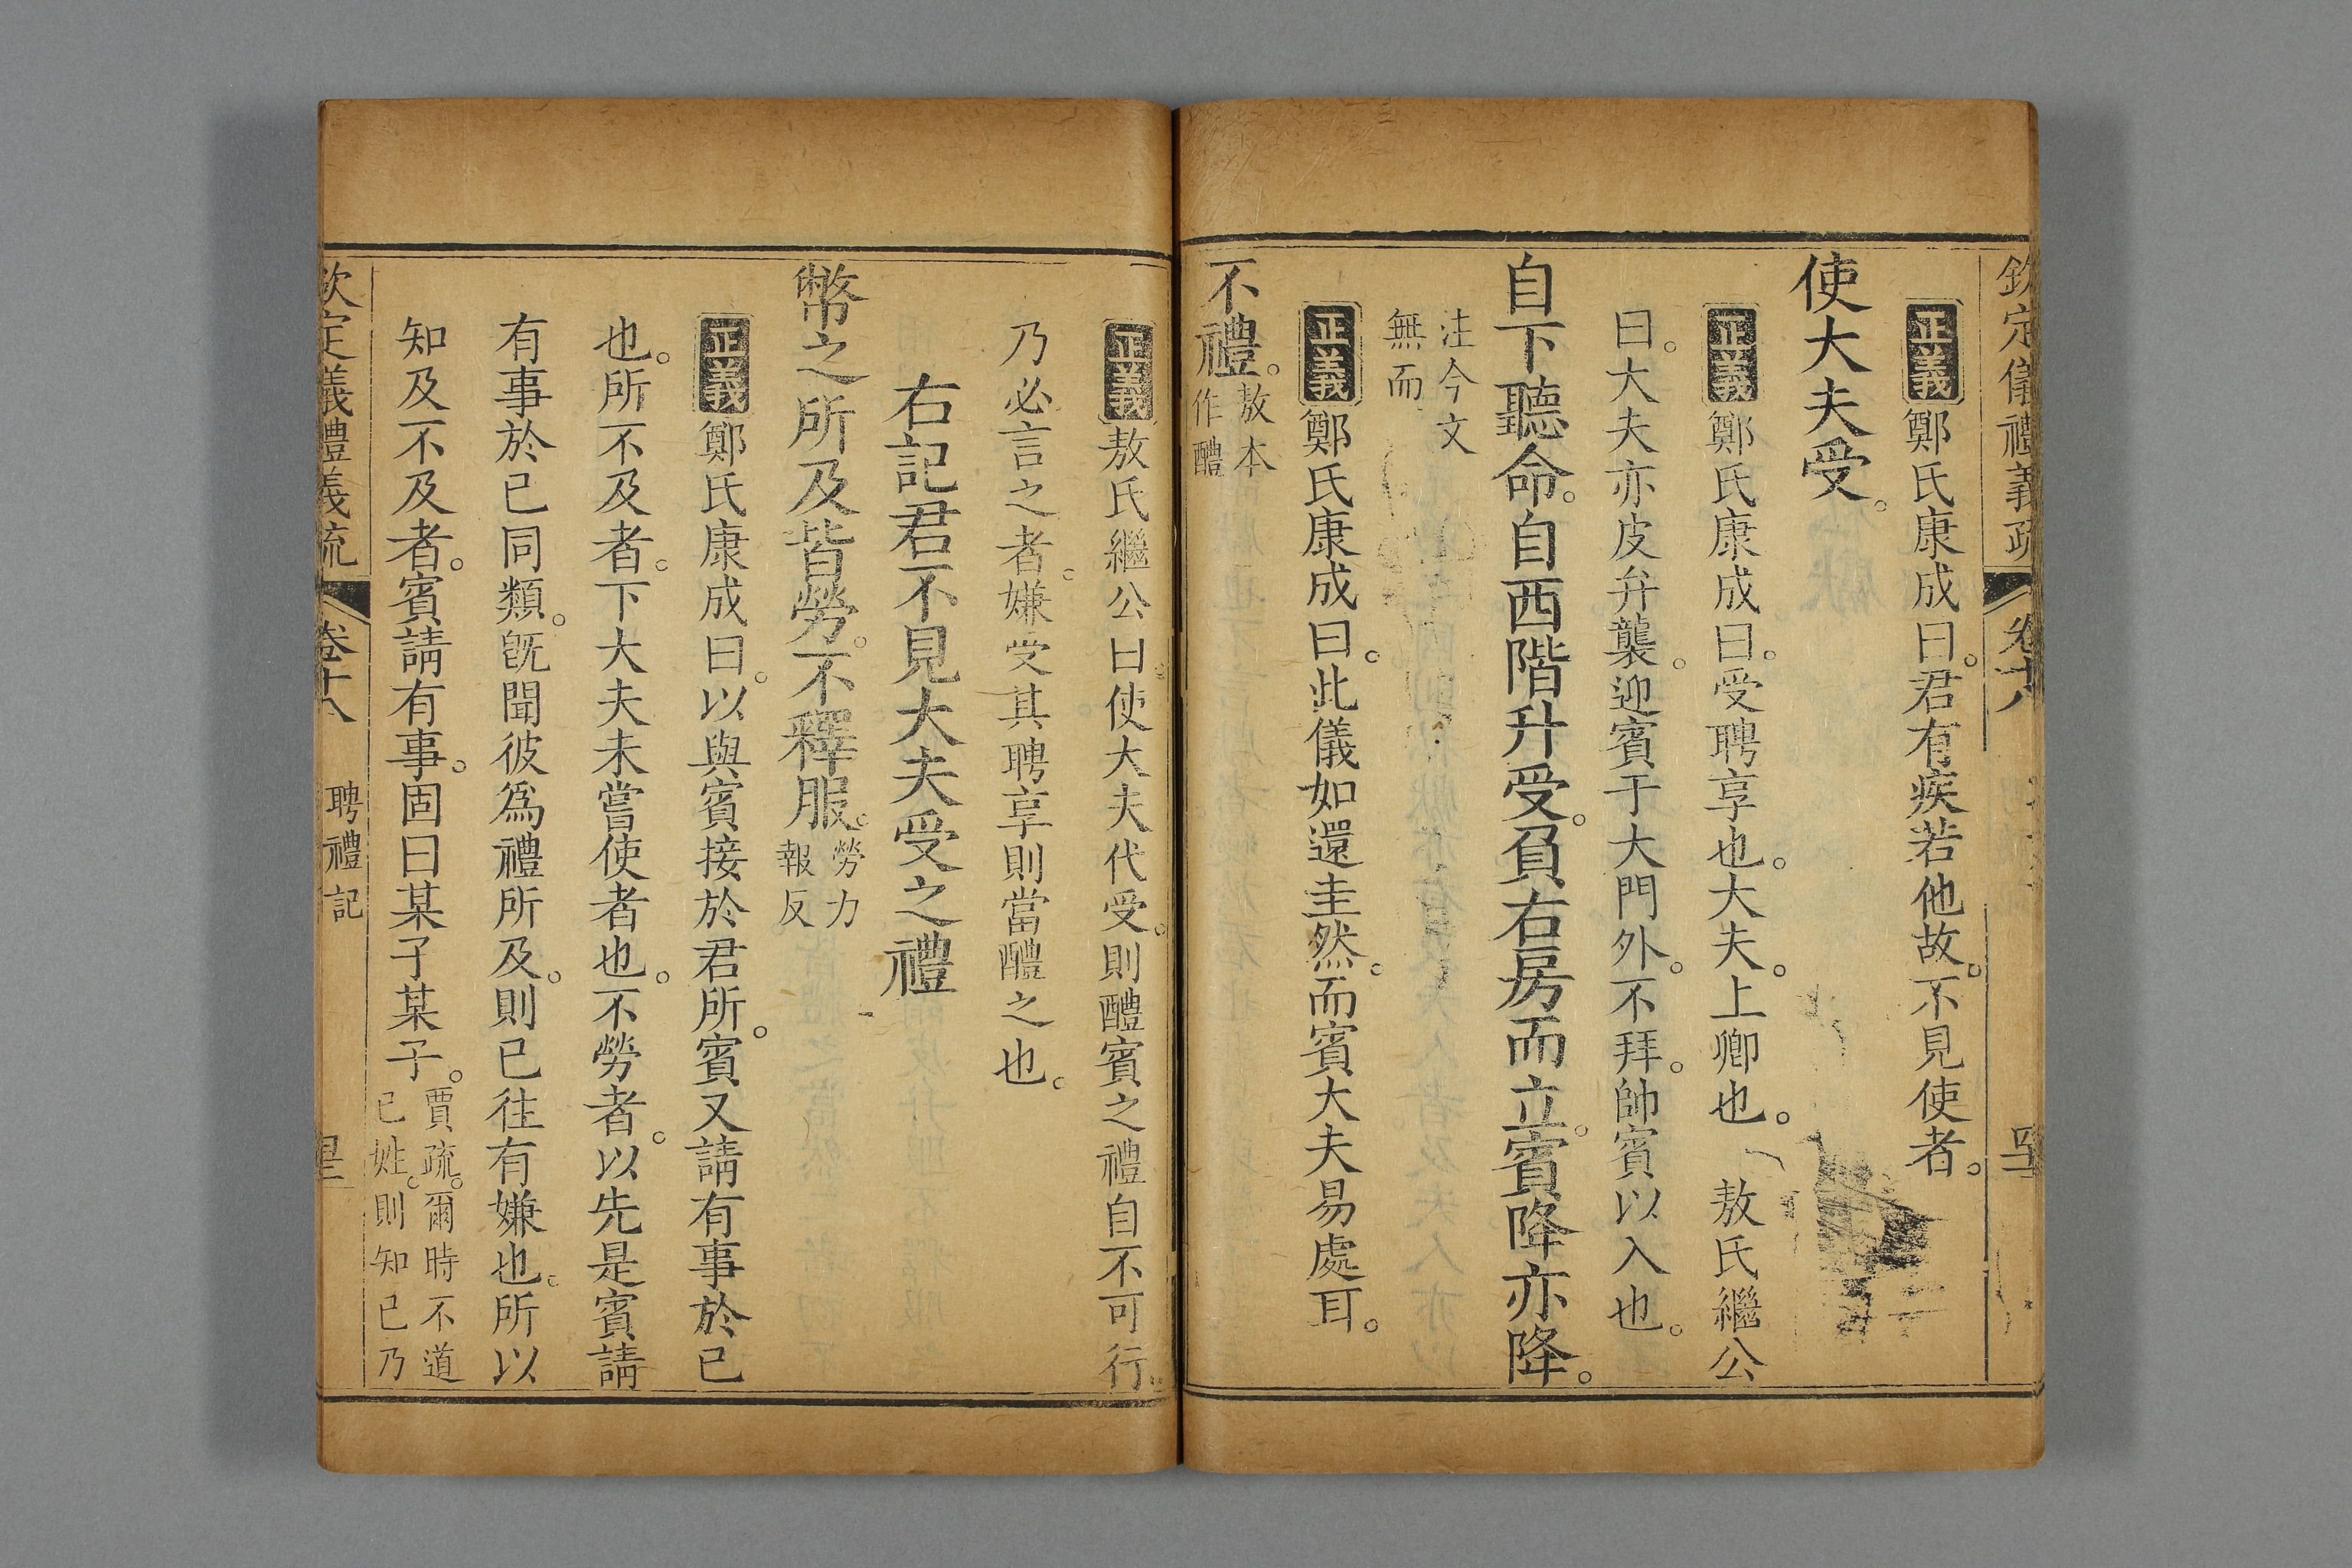 欽定儀禮義疏 卷十八
正義鄭氏康成曰。君有疾若他故。不見使者。
使大夫受。
正義鄭氏康成曰。受聘享也。大夫。上卿也。 敖氏繼公
曰。大夫亦皮弁襲。迎賓于大門外。不拜。帥賓以入也。
自下聽命。自西階升受。負右房而立。賓降亦降。
注今文
無而
正義鄭氏康成曰。此儀如還圭然。而賓大夫易處耳。
不禮。敖本
作醴
正義敖氏繼公曰。使大夫代受。則醴賓之禮自不可行。
乃必言之者。嫌受其聘享則當醴之也。
右記君不見大夫受之禮
幣之所及皆勞。不釋服。勞力
報反
正義鄭氏康成曰。以與賓接於君所。賓又請有事於已
也。所不及者。下大夫未嘗使者也。不勞者。以先是賓請
有事於已同類。旣聞彼爲禮所及。則已往有嫌也。所以
知及不及者。賓請有事。固曰某子某子。賈疏。爾時不道
已姓。則知已乃
欽定儀禮義疏 卷十八 聘禮記